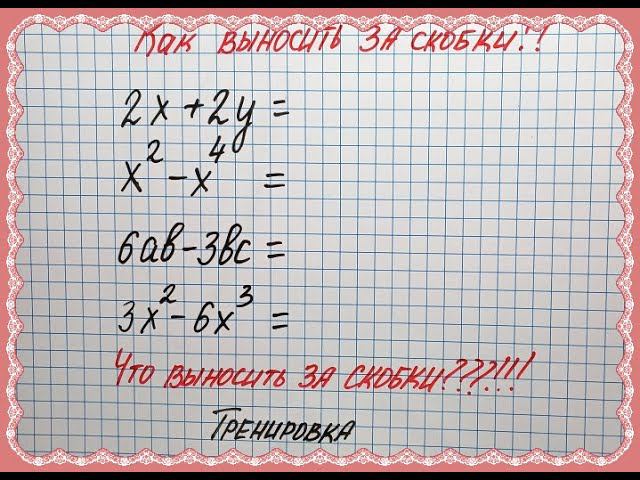 Как выносить за скобки!!
2x + 2y =
x² - x⁴ =
6ab - 3bc =
3x² - 6x³ =
Что выносить за скобки???!!!
Тренировка